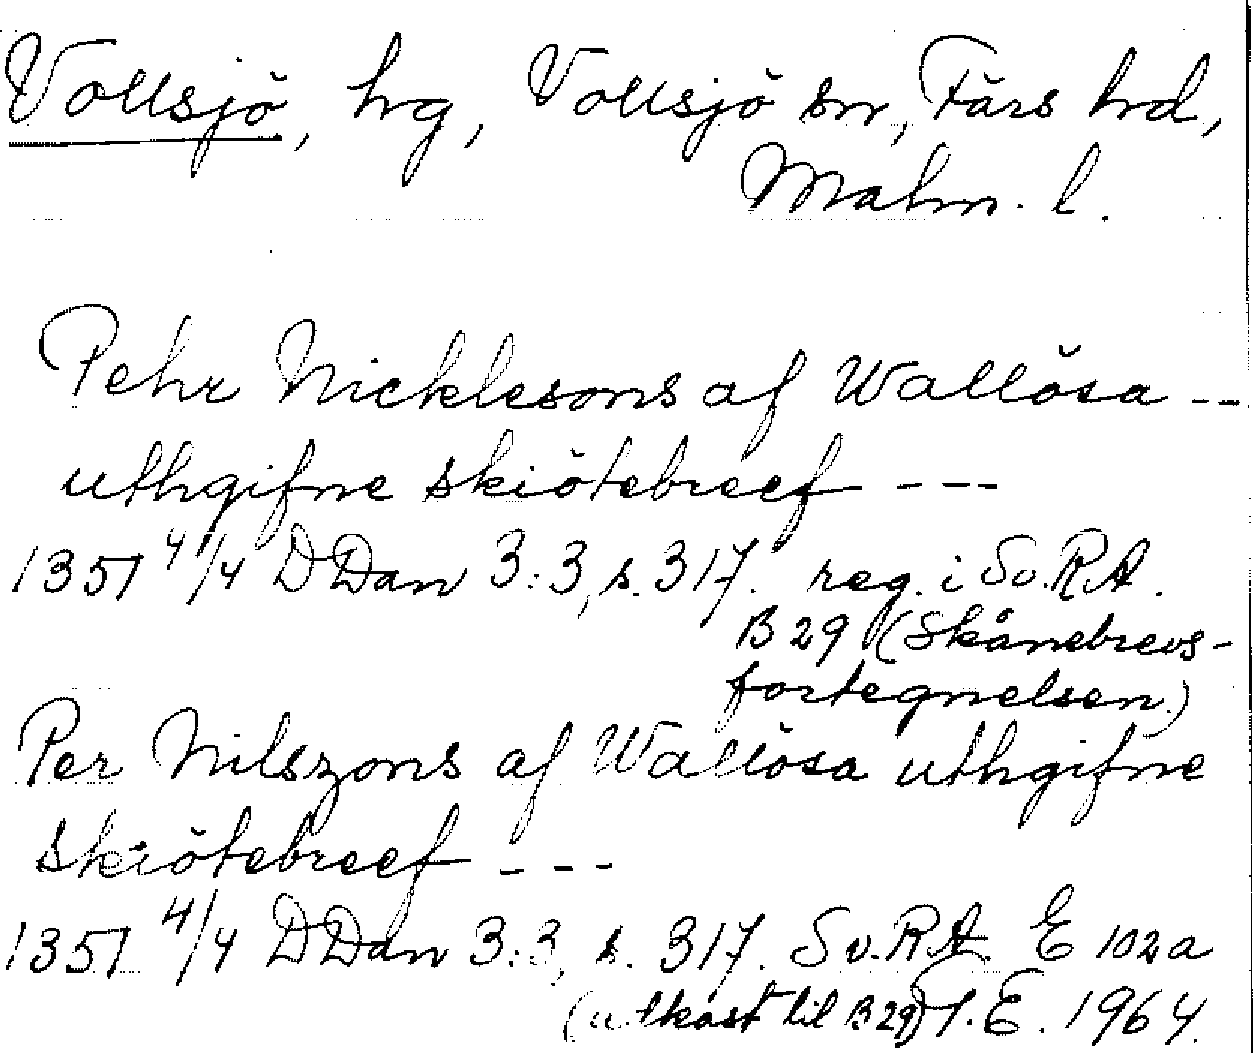 Vollsjö, hrg, Vollsjö sn, Färs hd,
Malm. l.
Pehr Nicklesons af Wallösa --
uthgifne skiötebreef ---
1351 4/4 DDan 3:3, s. 317. reg. i Sv.RA.
B 29 (Skånebrevs-
fortegnelsen.)
Per Nilszons af Wallösa uthgifne
skiötebreef ---
1351 4/4 DDan 3:3, s. 317. Sv.RA. E 102a
(utkast til B 29) I.E. 1964.